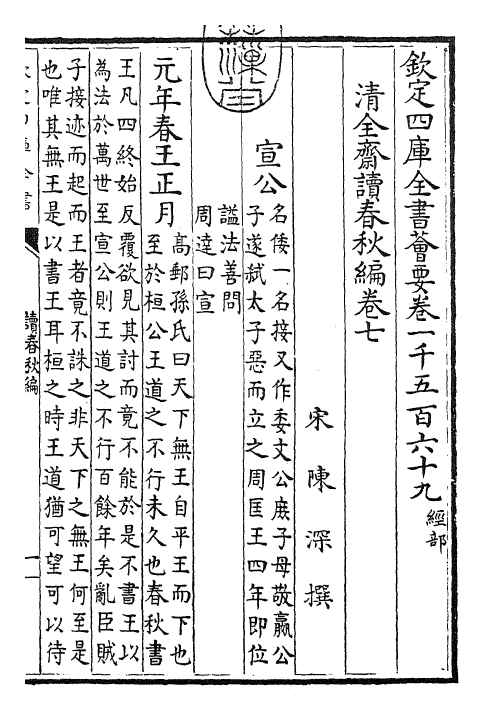 欽定四庫全書薈要卷一千五百六十九 經部
清全齋讀春秋編卷七
宋 陳深 撰
宣公
名倭一名接又作委文公庶子母敬嬴公
子遂弑太子惡而立之周匡王四年即位
諡法善問
周達曰宣
元年春王正月
高郵孫氏曰天下無王自平王而下也
至於桓公王道之不行未久也春秋書
王凡四終始反覆欲見其討而竟不能於是不書王以
為法於萬世至宣公則王道之不行百餘年矣亂臣賊
子接迹而起而王者竟不誅之非天下之無王何至是
也唯其無王是以書王耳桓之時王道猶可望可以待
讀春秋編
一